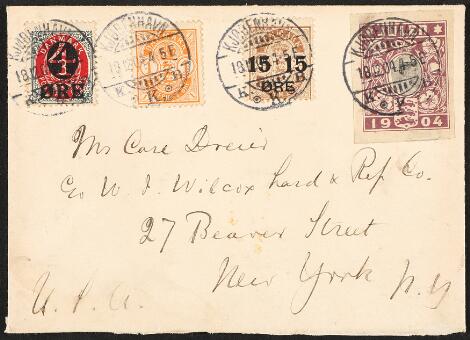 KJØBENHAVN KJØBENHAVN KJØBENHAVN KJØBENHAVN
DANMARK
4
ØRE
15 15
ØRE
JULEN
1904
K K K K
Mr Carl Dreier
C/o W. J. Wilcox Lard & Ref Co.
27 Beaver Street
New York N.Y.
U.S.A.